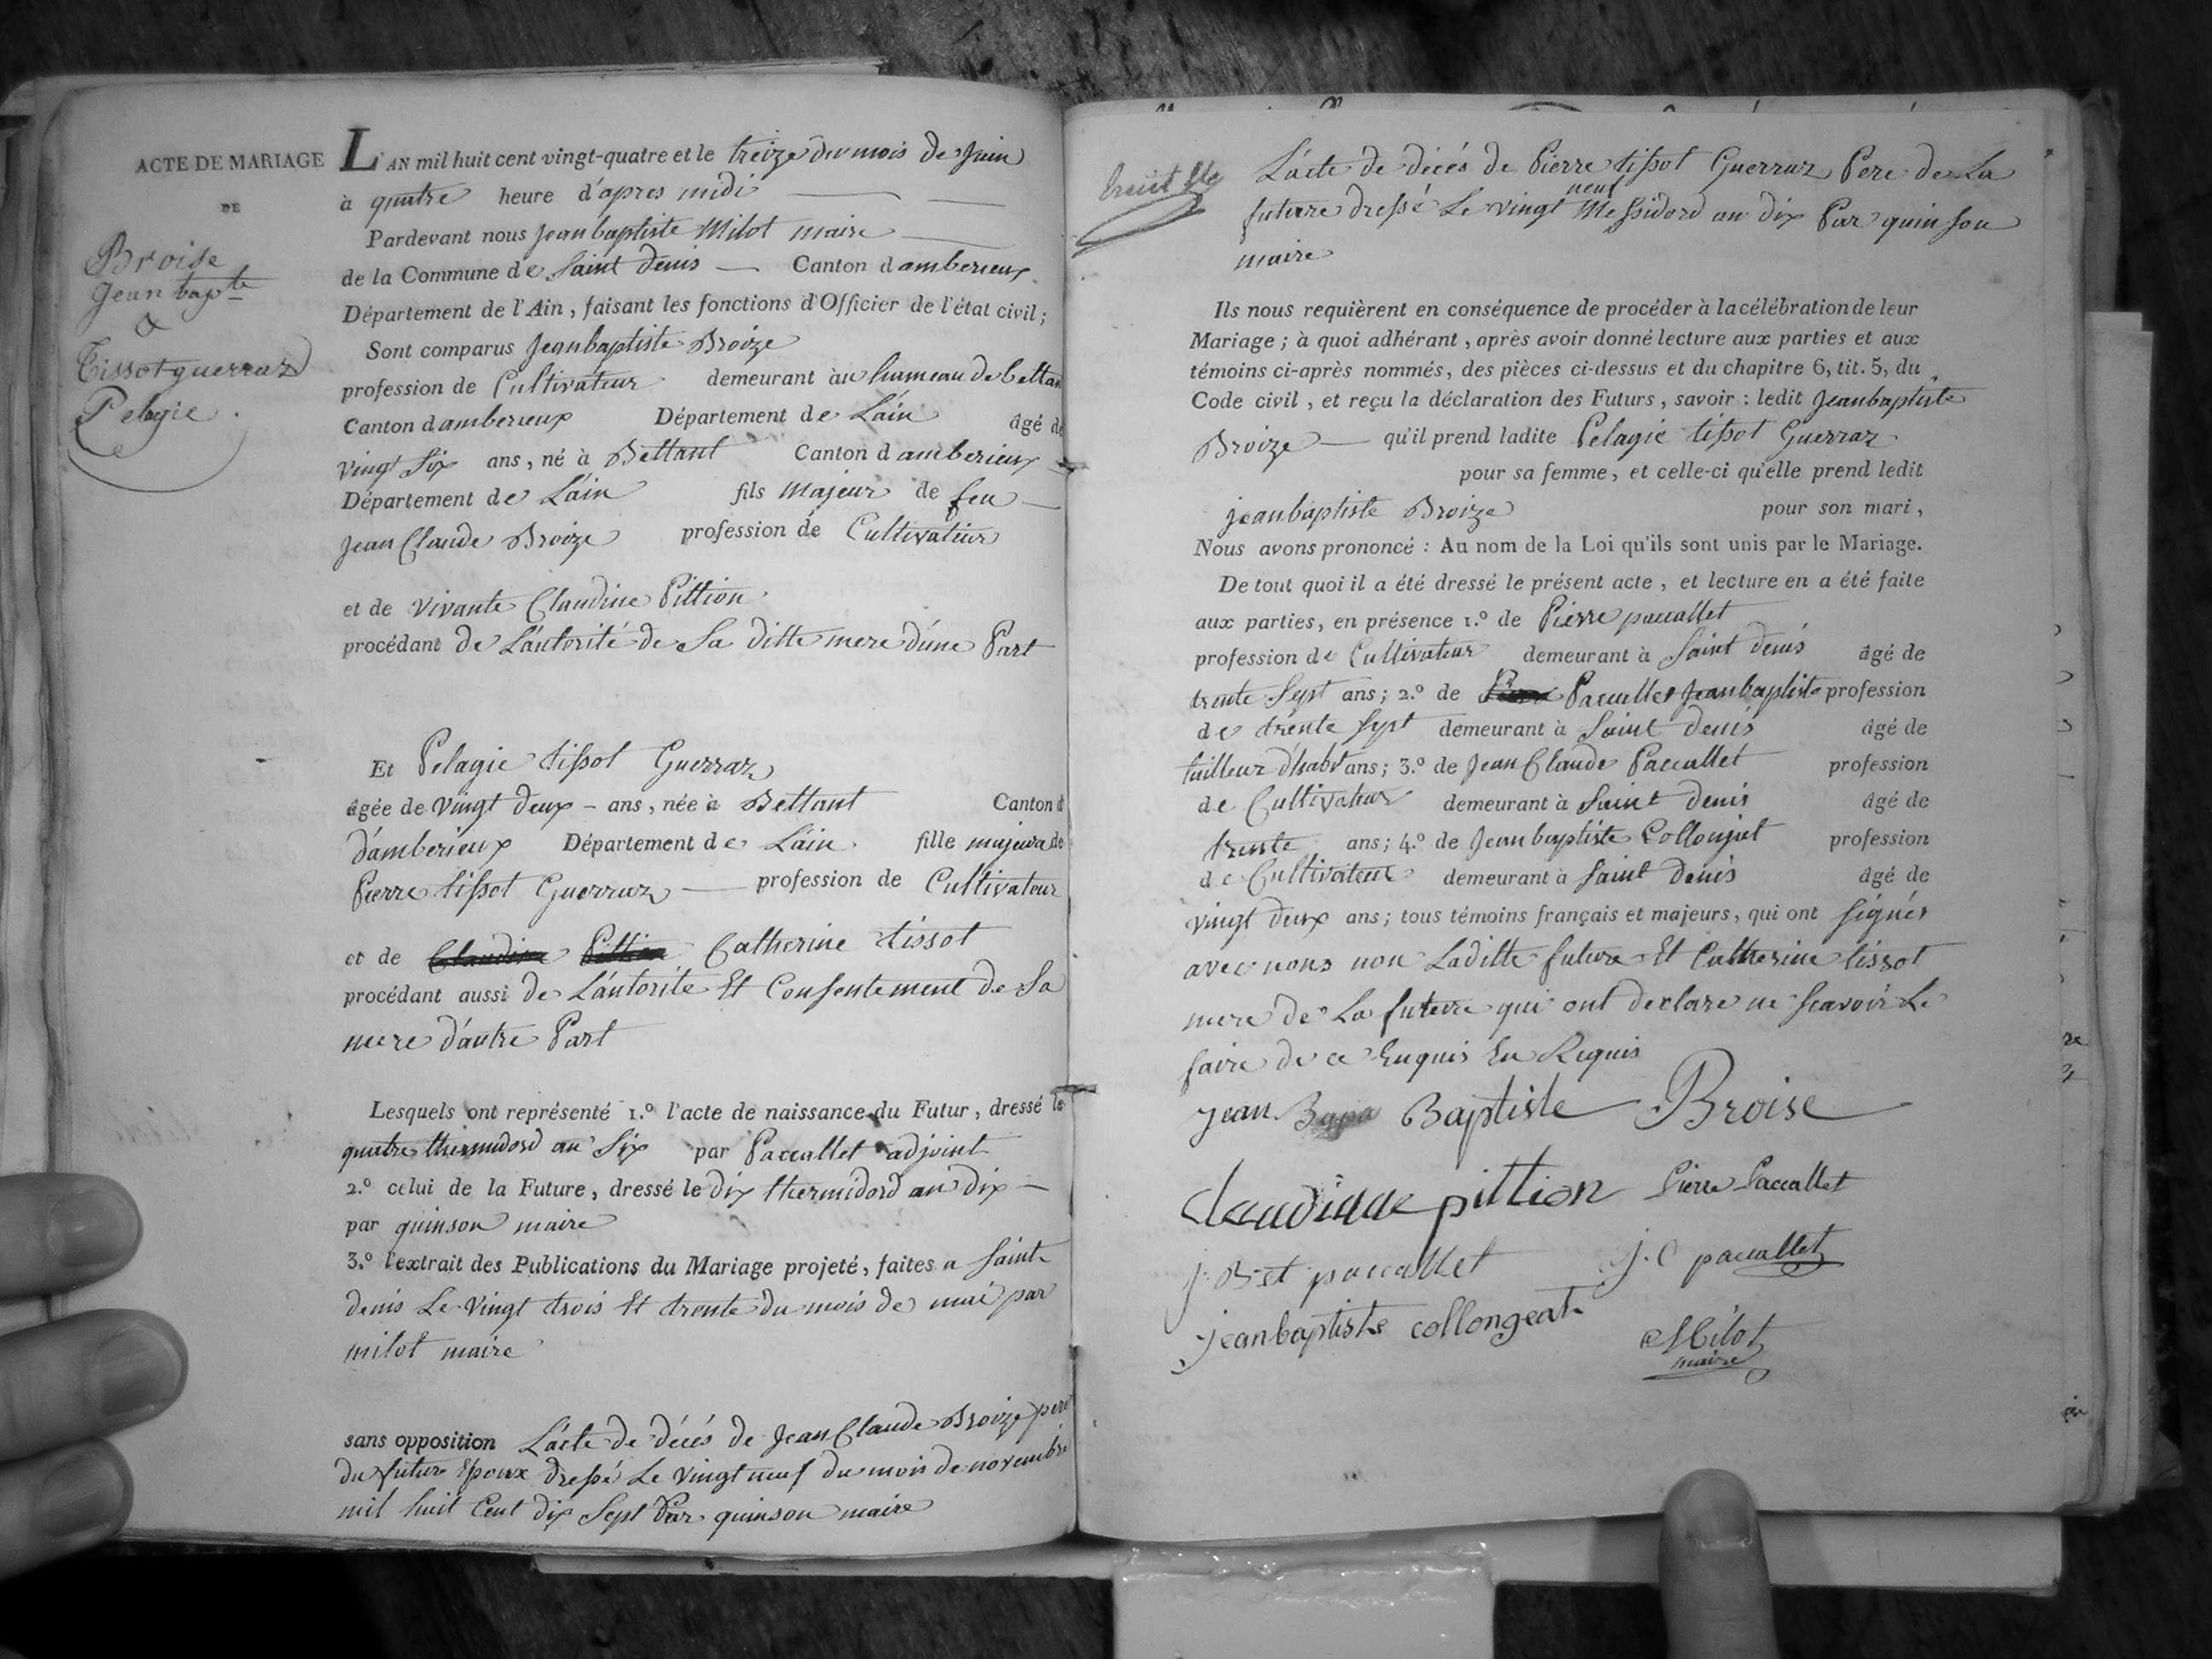 ACTE DE MARIAGE
DE
Broise
Jean bapte
&
Tissot guerraz
Pelagie
L'AN mil huit cent vingt-quatre et le treize du mois de Juin
à quatre heure d'apres midi
Pardevant nous Jean baptiste Milot maire
de la Commune de Saint denis — Canton d amberieux
Département de l'Ain, faisant les fonctions d'Officier de l'état civil;
Sont comparus Jeanbaptiste Broize
profession de Cultivateur demeurant àu hameau de bettan
Canton d amberieux Département de L'ain âgé de
vingt Six ans, né à Bettant Canton d amberieux
Département de L'ain fils Majeur de feu —
Jean Claude Broize profession de Cultivateur
et de vivante Claudine Pittion
procédant de L'autorité de Sa ditte mere d'une Part
Et Pelagie tissot Guerraz
âgée de vingt deux – ans, née à Bettant Canton d
d'amberieux Département de L'ain fille majeure de
Pierre tissot Guerraz — profession de Cultivateur
et de Claudine Pittion Catherine tissot
procédant aussi de L'autorité Et Consentement de Sa
mere d'autre Part
Lesquels ont représenté 1.º l'acte de naissance du Futur, dressé le
quatre thermidord an Six par Paccallet adjoint
2.º celui de la Future, dressé le dix thermidord an dix —
par quinson maire
3.º l'extrait des Publications du Mariage projeté, faites a Saint
denis Le vingt trois Et trente du mois de mai par
milot maire
sans opposition L'acte de décés de Jean Claude Broize pere
du futur Epoux dressé Le vingt neuf du mois de novembre
mil huit Cent dix Sept Par quinson maire
L'acte de décés de Pierre tissot Guerraz Pere de La
neuf
future dressé Le vingt Messidord an dix Par quinson
maire
Ils nous requièrent en conséquence de procéder à la célébration de leur
Mariage; à quoi adhérant, après avoir donné lecture aux parties et aux
témoins ci-après nommés, des pièces ci-dessus et du chapitre 6, tit. 5, du
Code civil, et reçu la déclaration des Futurs, savoir: ledit Jeanbaptiste
Broize — qu'il prend ladite Pelagie tissot Guerraz
pour sa femme, et celle-ci qu'elle prend ledit
jeanbaptiste Broize pour son mari,
Nous avons prononcé: Au nom de la Loi qu'ils sont unis par le Mariage.
De tout quoi il a été dressé le présent acte, et lecture en a été faite
aux parties, en présence 1.º de Pierre paccallet
profession de Cultivateur demeurant à Saint denis âgé de
trente Sept ans; 2.º de Paccallet Jeanbaptiste profession
de trente Sept demeurant à Saint denis âgé de
tailleur d'habt ans; 3.º de Jean Claude Paccallet profession
de Cultivateur demeurant à Saint denis âgé de
trente ans; 4.º de Jean baptiste Collonjat profession
de Cultivateur demeurant à Saint denis âgé de
vingt deux ans; tous témoins français et majeurs, qui ont signés
avec nous non Laditte future Et Catherine tissot
mere de La future qui ont declare ne Scavoir Le
faire de ce Enquis Eu Requis
jean Bapa Baptiste Broise
claudinne pittion Pierre Paccallet
j. B et paccallet j. C paccallet
jeanbaptiste collongeat
Milot
maire